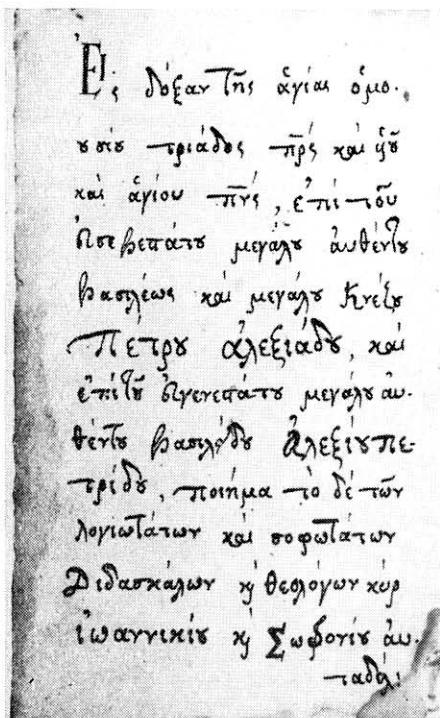 Εἰς δόξαν τῆς ἁγίας ὁμο-
ουσίου τριάδος π̅ρ̅ς καὶ υ̅ἱ̅οῦ
καὶ ἁγίου π̅ν̅ς, ἐπὶ τοῦ
εὐσεβεστάτου μεγάλου αὐθέντου
βασιλέως καὶ μεγάλου Κνέζου
Πέτρου ἀλεξιάδου, καὶ
ἐπὶ τοῦ εὐγενεστάτου μεγάλου αὐ-
θέντου βασιλείδου Ἀλεξίου πε-
τρίδου, ποίημα τὸ δὲ τῶν
λογιωτάτων καὶ σοφωτάτων
Διδασκάλων κ̀ θεολόγων κὺρ
ἰωαννικίου κ̀ Σωφρονίου αὐ-
ταδέλ: